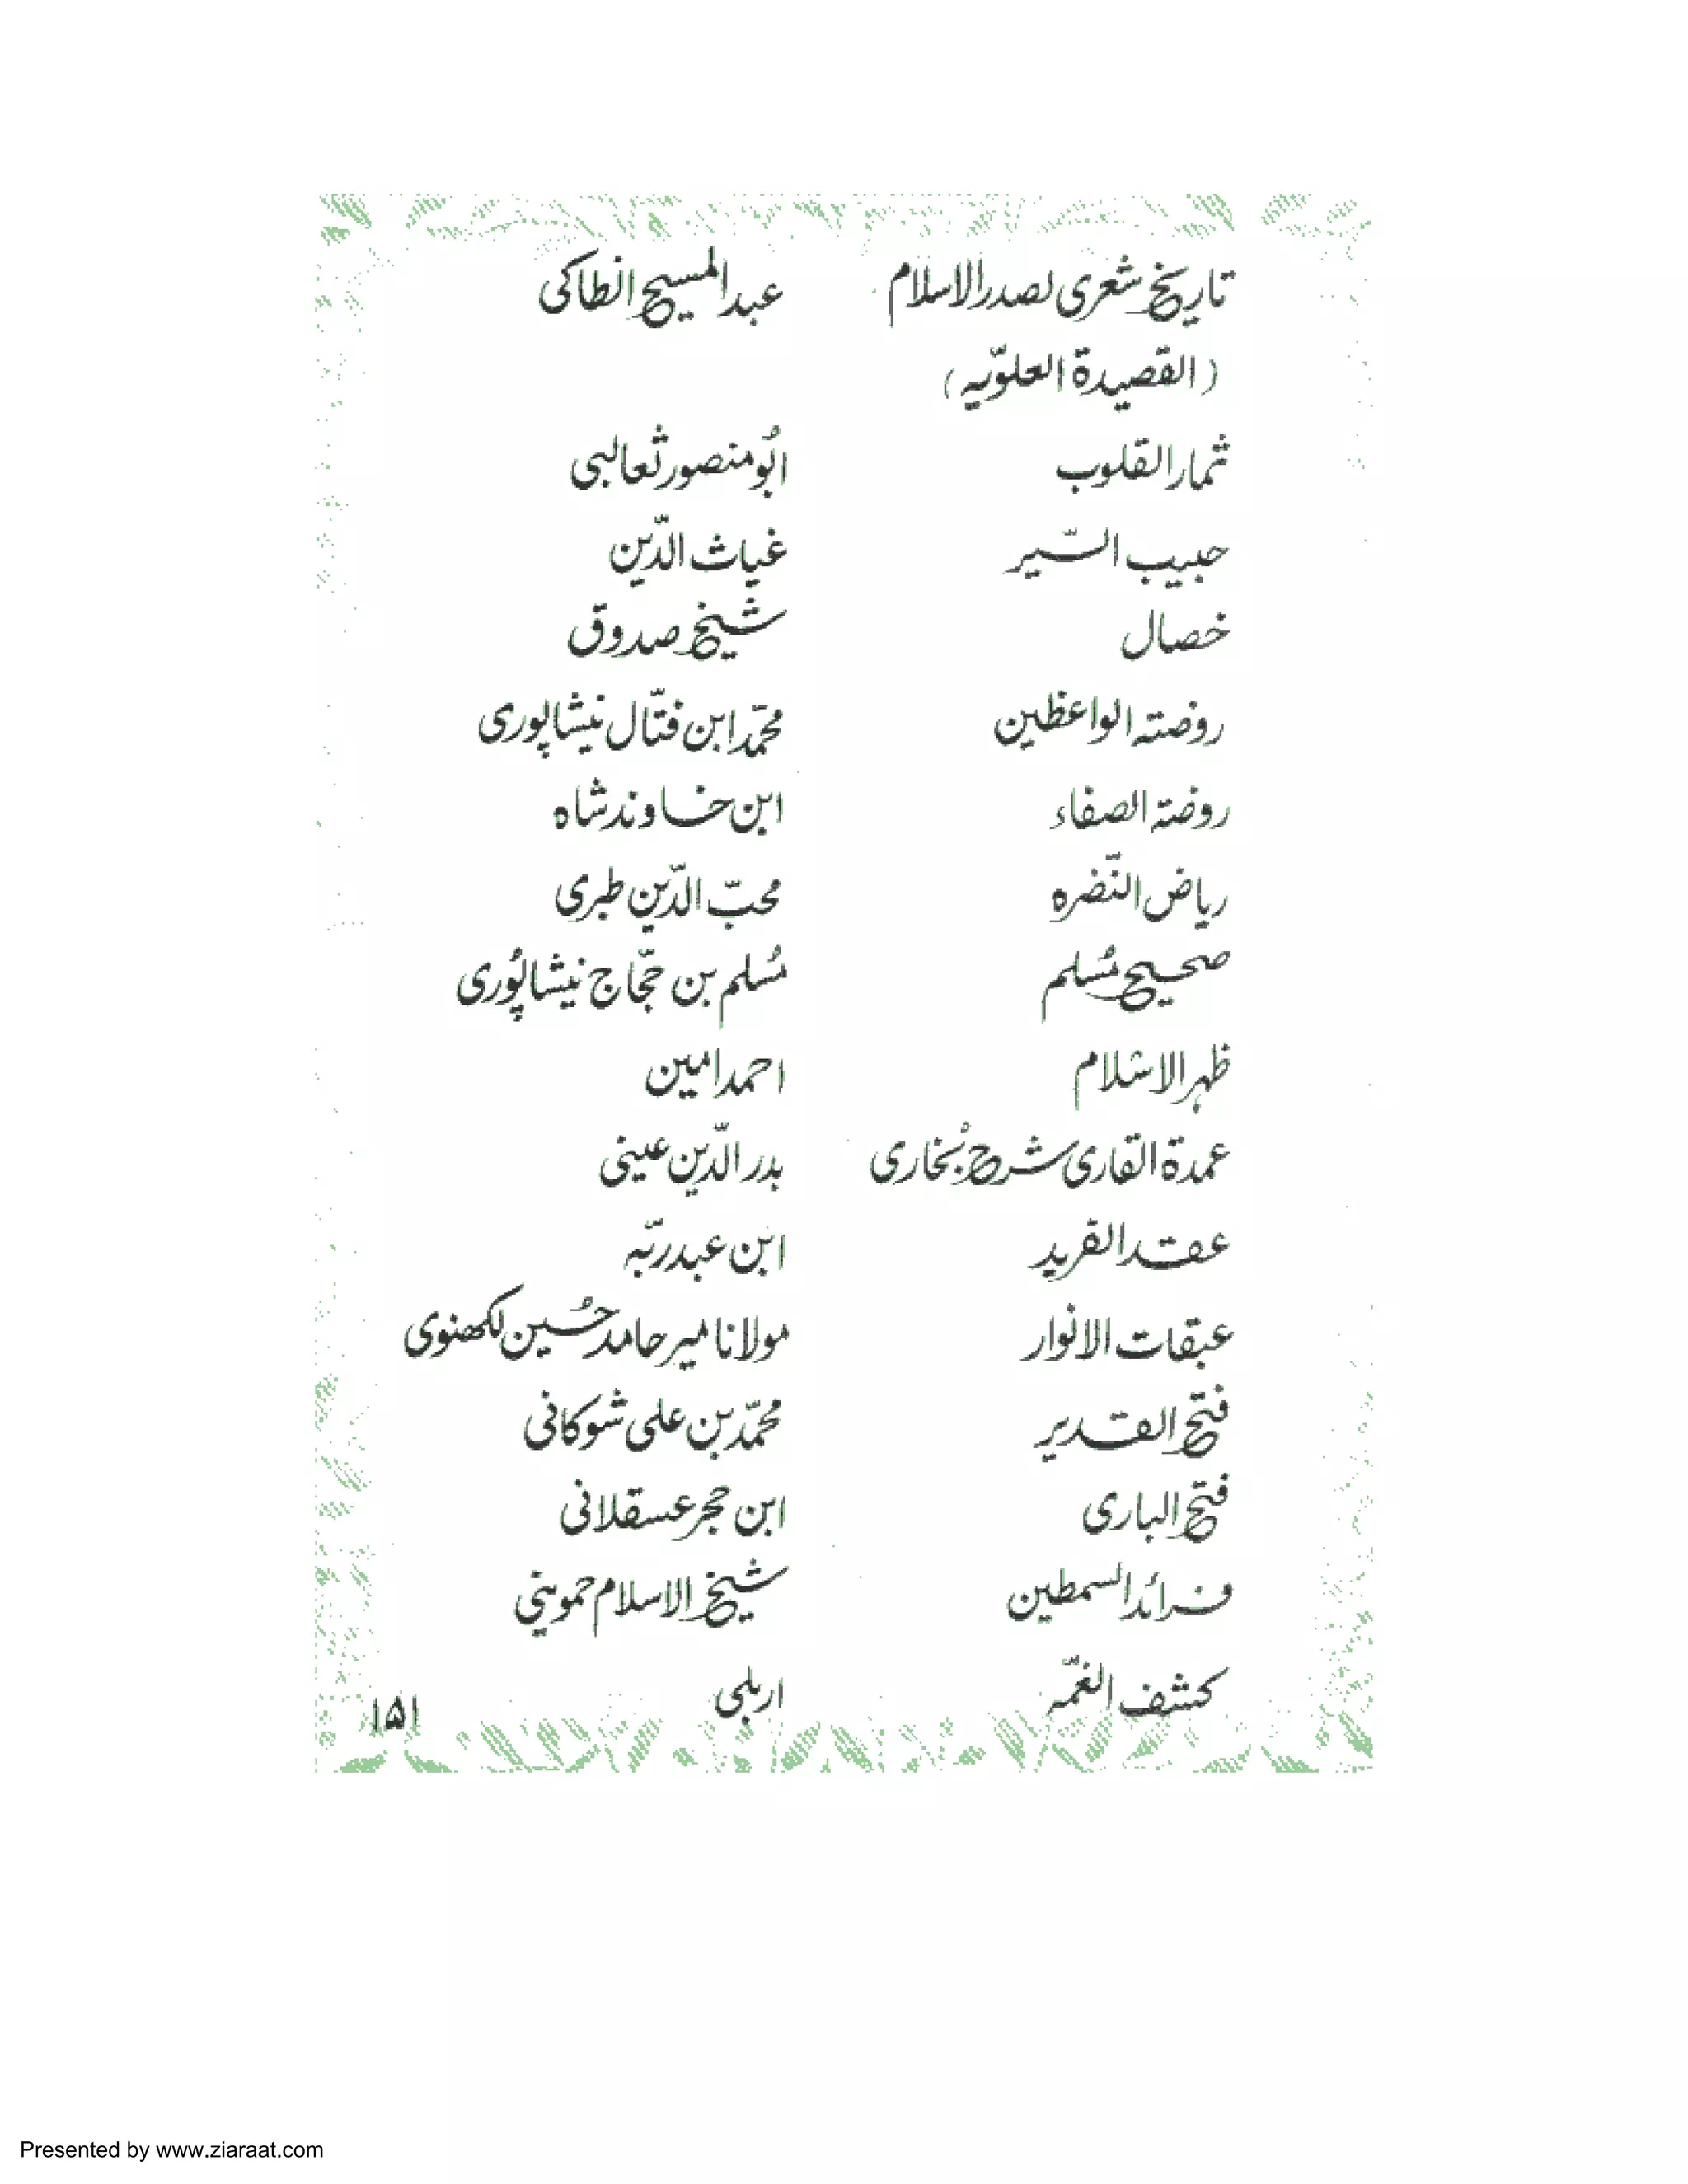 تاریخ شعری لصدر الاسلام عبد المسیح انطاکی
(القصیدۃ العلویّہ)
ثمار القلوب ابُو منصور ثعالبی
حبیب السّیر غیاث الدّین
خصال شیخ صدوق
روضتہ الواعظین محمّد ابن فتّال نیشاپوری
روضتہ الصفاء ابن خاوند شاہ
ریاض النّضرہ محبّ الدّین طبری
صحیح مُسلم مُسلم بن حجّاج نیشاپُوری
ظہر الاسلام احمد امین
عمدۃ القاری شرح بُخاری بدر الدّین عینی
عقد الفرید ابن عبد ربّہ
عبقات الانوار مولانا میر حامد حُسین لکھنوی
فتح القدیر محمّد بن علی شوکانی
فتح الباری ابن حجر عسقلانی
فرائد السمطین شیخ الاسلام حموینی
کشف الغمّہ اربلی
۱۵۱
Presented by www.ziaraat.com